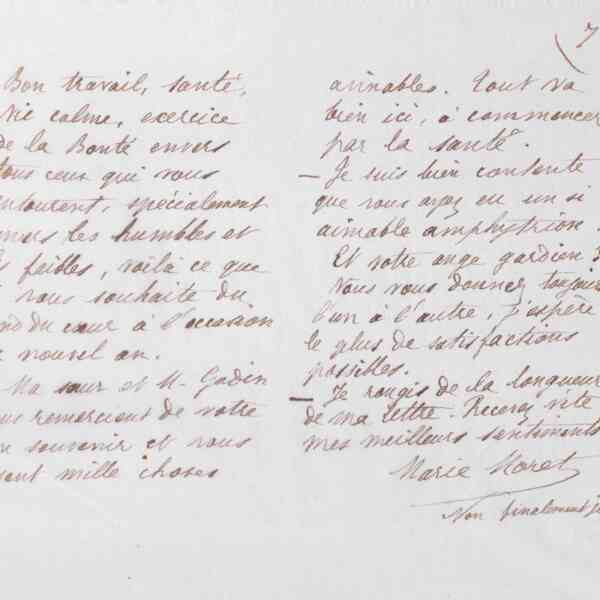 7
Bon travail, santé,
vie calme, exercice
de la Bonté envers
tous ceux qui vous
entourent, spécialement
envers les humbles et
les faibles, voilà ce que
vous souhaite du
fond du cœur à l'occasion
nouvel an.
Ma sœur et M. Godin
vous remercient de votre
souvenir et vous
disent mille choses
aimables. Tout va
bien ici, à commencer
par la santé.
— Je suis bien contente
que vous ayez eu un si
aimable amphytrion.
Et votre ange gardien ?
Vous vous donnez toujours
l'un à l'autre, j'espère
le plus de satisfactions
possibles.
— Je rougis de la longueur
de ma lettre. Recevez vite
mes meilleurs sentiments
Marie Moret
Non finalement je